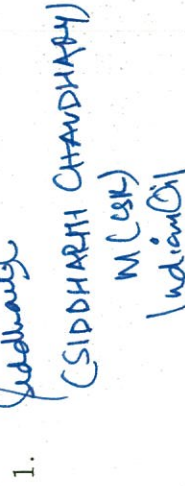 1.
Siddharth
(SIDDHARTH CHAUDHARY)
M (CSR)
IndianOil